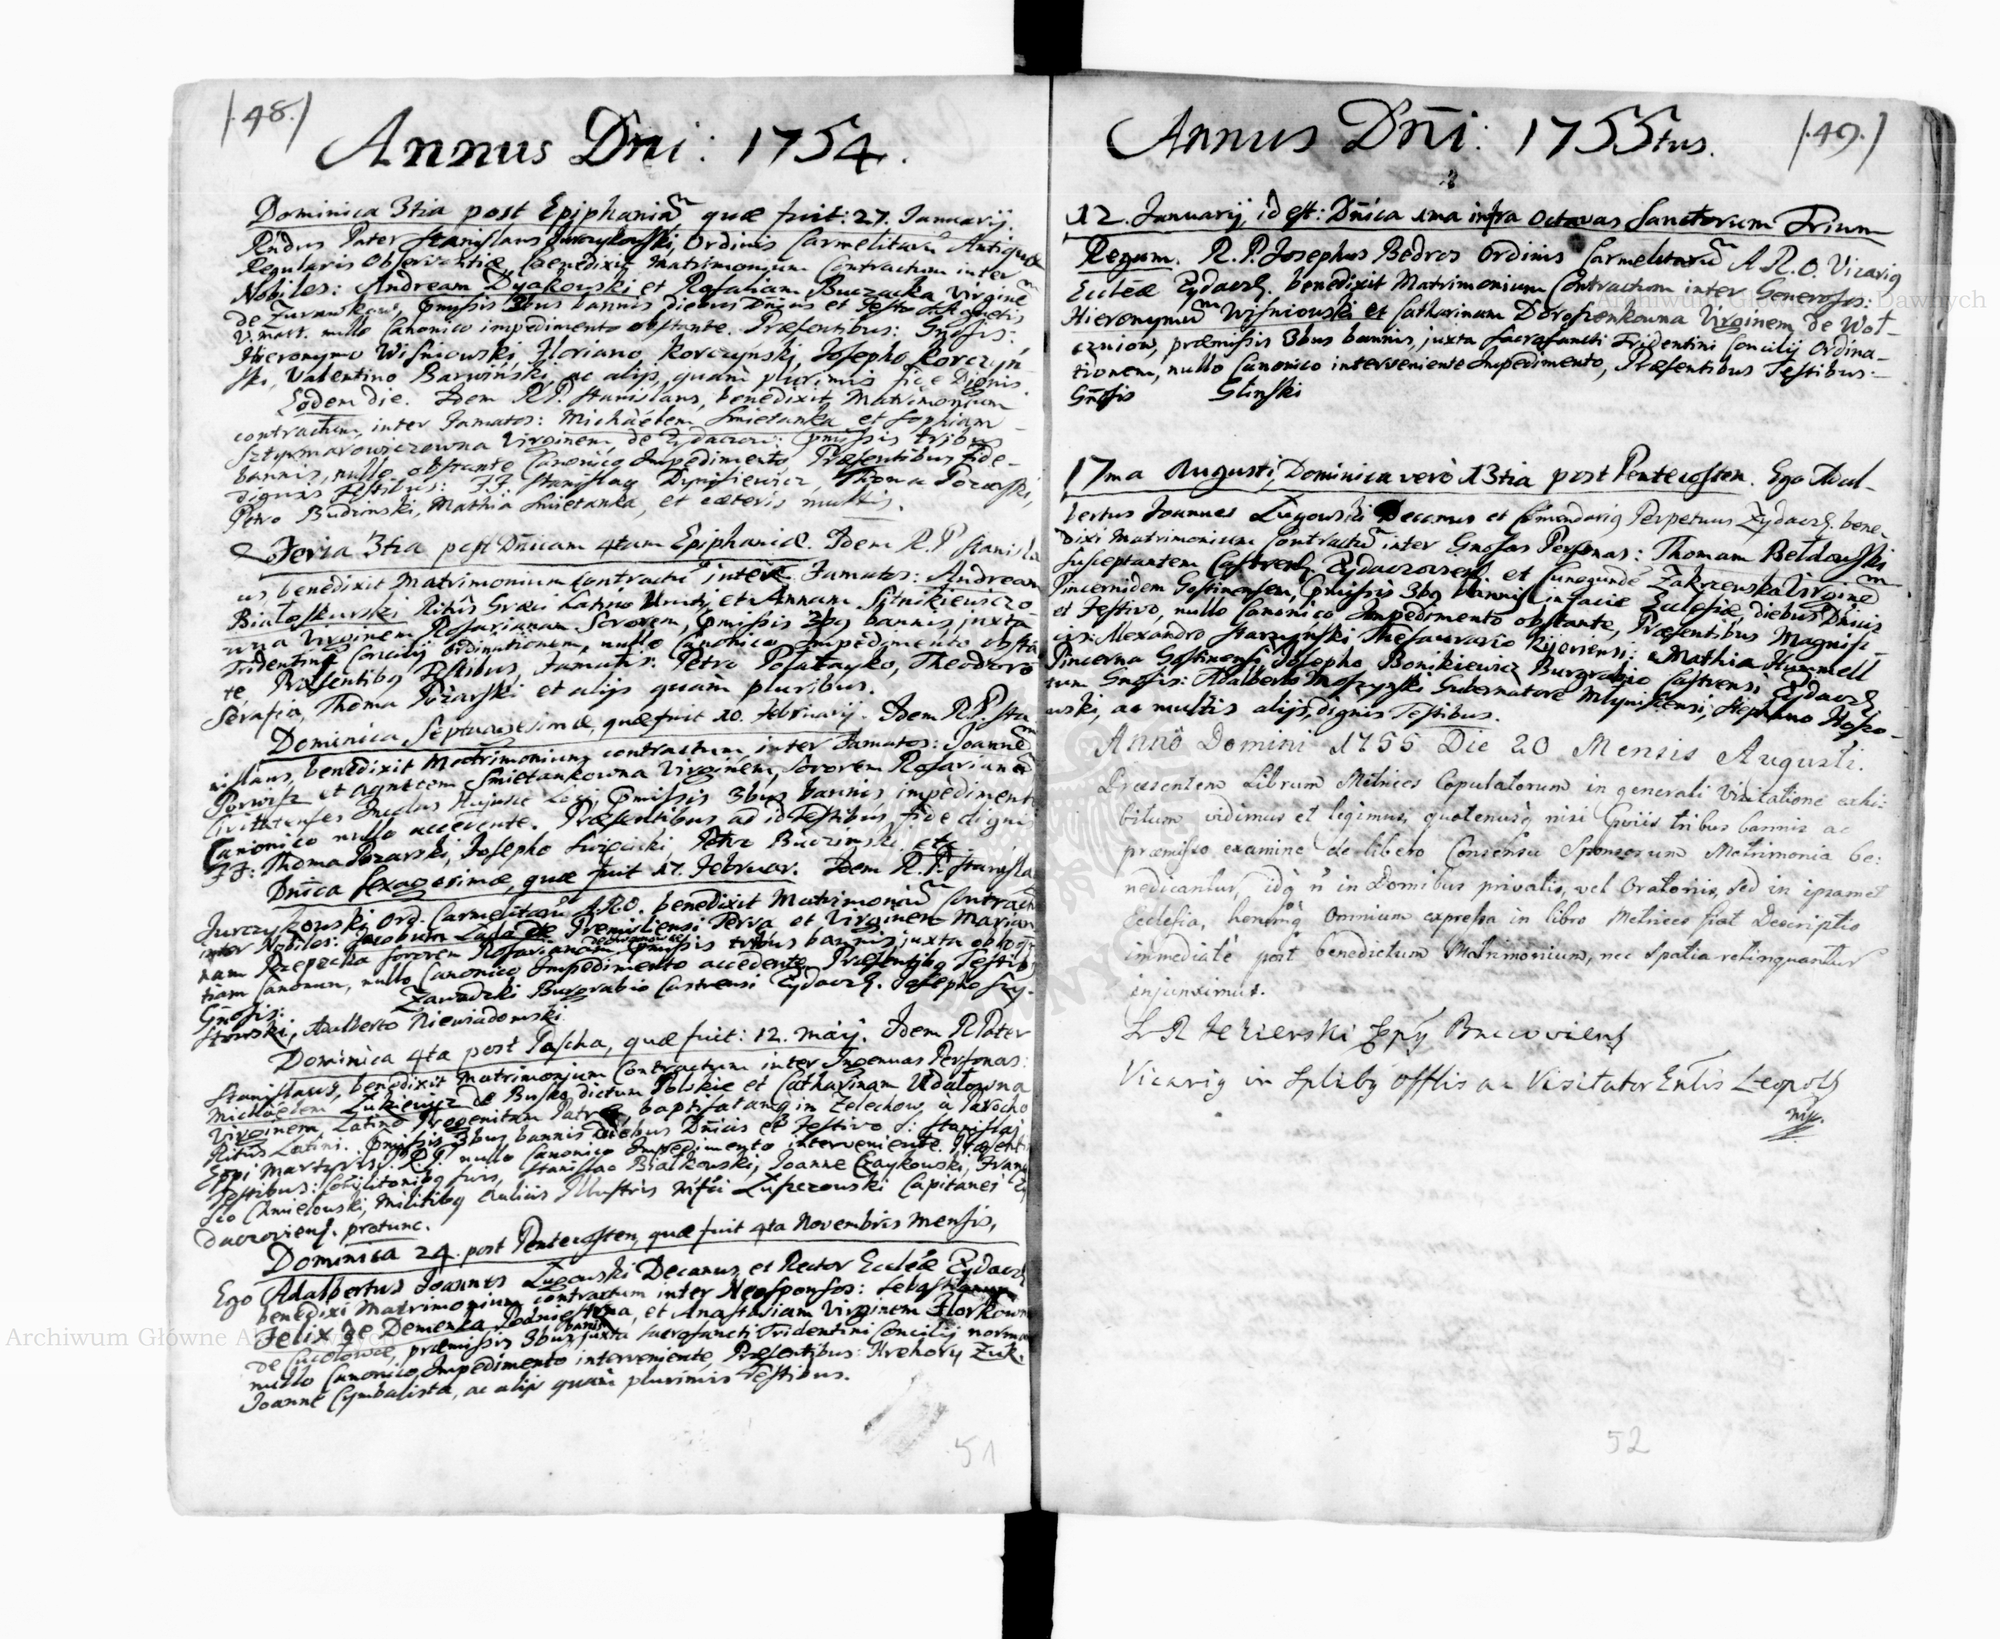 /.48./
Annus Dni: 1754.
Dominica 3tia post Epiphaniam quæ fuit: 27. Januarij.
Rndus Pater Stanislaus Jurczykowski, Ordinis Carmelitarum Antiquæ
Regularis Observantiæ benedixit Matrimonium Contractum inter
Nobiles: Andream Dyakowski et Rosaliam Buczacka Virginem
de Zurawkow, pmissis 3bus bannis diebus Dnicis et Festo
nullo Canonico impedimento obstante. Præsentibus: Gnosis:
Hieronymo Wisniowski, Floriano Korczynski, Josepho Korczyn-
ski, Valentino Barwiński, ac alijs quam plurimis fide Dignis.
Eodem die. Idem R.P. Stanislaus, benedixit Matrimonium
contractum, inter Famatos: Michaëlem Smietanka et Sophiam
Sztyxmarowiczowna Virginem, de Zydaczow: pmissis tribus
bannis, nullo obstante Canonico Impedimento Præsentibus fide-
dignis Testibus: FF. Stanislao Dynisiewicz, Thoma Pozarski,
Petro Budzinski, Mathia Smietanka, et cæteris multis.
Feria 3tia post Dnicam 4tam Epiphaniæ. Idem R.P. Stanisla
us benedixit Matrimonium Contractu inter Famatos: Andream
Białoskurski Ritûs Græci Latino Uniti, et Annam Sytnikiewiczo-
wna Virginem Rosarianam Sororem, pmissis 3bq bannis, juxta
Tridentini Concilij ordinationem, nullo Canonico Impedimento obsta
te Præsentibq Testibus, Famatis: Petro Posatayko, Theodoro
Serafin, Thoma Pozarski et alijs quam pluribus.
Dominica Septuagesimæ, quæ fuit 10. Februarij. Idem R.P. Sta
nislaus, benedixit Matrimonium contractum, inter Famatos: Joannem
Porwisz et Agnetem Smietankowna Virginem, Sororem Rosarianam
Civitatenses Incolas Hujusce Loci, pmissis 3bus bannis impedimento
Canonico nullo accedente. Præsentibus ad id Testibus fide dignis
FF: Thoma Pozarski, Josepho Petro Budzinski etc.
Dnica Sexagesimæ, quæ fuit 17. Februar. Idem R.P. Stanisla
Jurczykowski Ord. Carmelitaru A.R.O. benedixit Matrimonium Contractu
inter Nobiles: Jacobum de Premisliensi Terra, et Virginem Marian
nam Rzepecka sororem Rosarianam pmissis tribus bannis, juxta
tiam Canonum, nullo Canonico Impedimento accedente. Præsentibq Testibq
Gnosis: Zawadzki Burgrabio Castrensi Zydacz. Josepho Szy-
stowski, Adalberto Niewiadomski.
Dominica 4ta post Pascha, quæ fuit: 12. Maij. Idem R. Pater
Stanislaus, benedixit Matrimonium Contractum inter Ingenuas Personas:
Michaëlem Zukiewicz de Busko dictum Polskie et Catharinam Udalowna
Virginem Latino Progenitam Patre, baptisatamq in Zelechow, à Parocho
Ritus Latini. pmissis 3bus bannis diebus Dnicis et Festivo S: Stanislaj
Eppi Martyris, nullo Canonico Impedimento interveniente. Præsenti
Testibus: suis, Stanislao Bialkowski, Joanne Czaykowski, Fran
Chmielowski, Militibq Aulicis Illustris Capitanei Zy
daczoviens. protunc.
Dominica 24. post Pentecosten, quæ fuit 4ta Novembris Mensis,
Ego Adalbertus Joannes Lugowski Decanus, et Rector Ecclæ Zydacz
benedixi Matrimonium contractum inter Neosponsos: Sebastianum
Felix de Demenka Podniestrna, et Anastasiam Virginem Florkowna
de præmissis 3bus bannis juxta sacrosancti Tridentini Concilij norma
nullo Canonico Impedimento interveniente, Præsentibus: Hrehory Zuk.
Joanne Cymbalista, ac alijs quam plurimis Testibus.
51
Annus Dni: 1755tus.
/.49./
12. Januarij, id est: Dnica 1ma infra Octavas Sanctorum Trium
Regum. R.P. Josephus Bedros Ordinis Carmelitaru A.R.O. Vicariq
Ecclæ Zydacz. benedixit Matrimonium Contractum inter Generosos:
Hieronymum Wisniowski et Catharinam Dorosienkowna Virginem de Woł-
czniow, præmissis 3bus bannis, juxta Sacrosancti Tridentini Concilij Ordina-
tionem, nullo Canonico interveniente Impedimento, Præsentibus Testibus:
Gnosis Glinski
17ma Augusti, Dominica verò 13tia post Pentecosten. Ego Adal-
bertus Joannes Lugowski Decanus et Comendariq Perpetuus Zydacz. bene-
dixi Matrimonium Contractu inter Gnosas Personas: Thomam Beldowski
Susceptantem Castrens. Zydaczoviens. et Cunegundem Zakrzewska Virginem
Pincernidem Gostinensem, pmissis 3bq bannis, in facie Ecclesiæ, diebus Dnicis
et Festivo, nullo Canonico Impedimento obstante, Præsentibus Magnifi-
cis: Alexandro Starzynski Thesaurario Kijoviensi: Mathia Hummell
Pincerna Gostinensi, Josepho Bonikiewicz Burgrabio Castrensi Zydacz.
tum Gnosis: Adalberto Moszynski Gubernatore Mlyniscensi, Stephano Hoszo-
wski, ac multis alijs, dignis Testibus.
Anno Domini 1755 Die 20 Mensis Augusti.
Præsentem Librum Metrices Copulatorum in generali Visitatione exhi-
bitum vidimus et legimus, quatenusq nisi pviis tribus bannis ac
præmisso examine de libero Consensu Sponsorum Matrimonia be:
nedicantur, idq n in Domibus privatis, vel Oratoriis, sed in ipsamet
Ecclesia, horumq Omnium expressa in libro Metrices fiat Descriptio
immediatè post benedictum Matrimonium, nec Spatia relinquantur
injunximus.
S R Jezierski Epps Bacoviens
Vicariq in Splibq Offlis ac Visitator Gnlis Leopols
mp.
52
Archiwum Główne Akt Dawnych